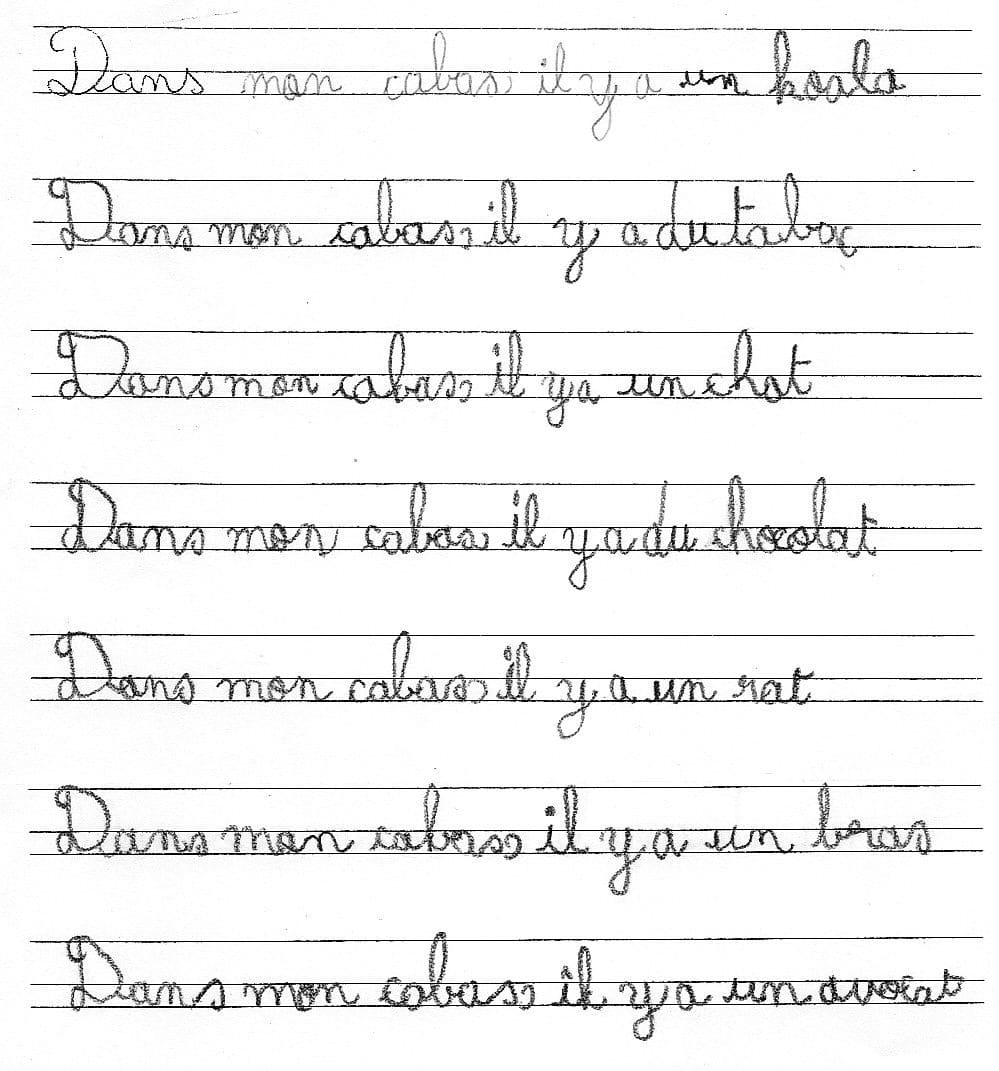 Dans mon cabas, il y a un koala
Dans mon cabas, il y a du tabac
Dans mon cabas, il y a un chat
Dans mon cabas, il y a du chocolat
Dans mon cabas, il y a un rat
Dans mon cabas, il y a un bras
Dans mon cabas, il y a un avocat